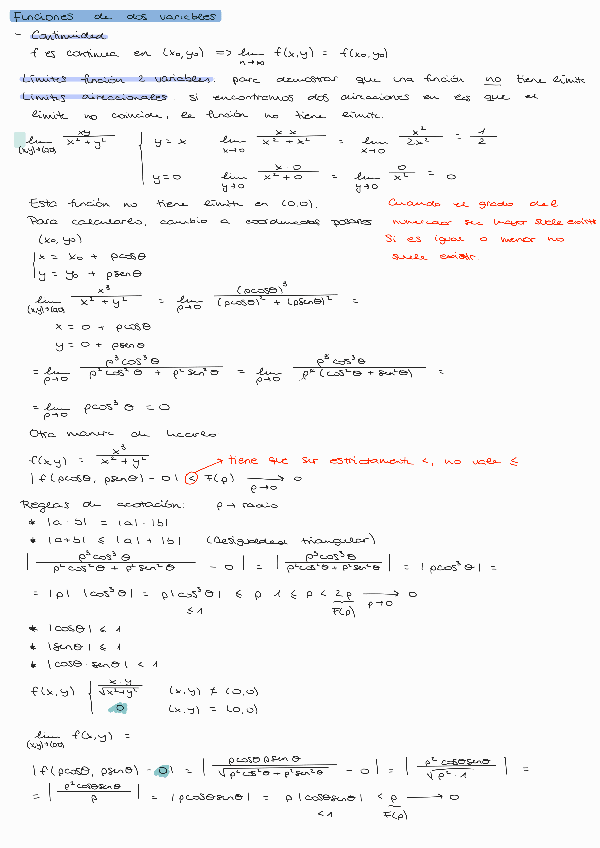 Funciones de dos variables
- Continuidad
f es continua en (x₀,y₀) => lim n→∞ f(x,y) = f(x₀,y₀)
Límites función 2 variables. para demostrar que una función no tiene límite
Límites direccionales. si encontramos dos direcciones en las que el
límite no coincide, la función no tiene límite.
lim (x,y)→(0,0) xy / x²+y² { y=x lim x→0 x·x / x²+x² = lim x→0 x² / 2x² = 1/2
y=0 lim y→0 x·0 / x²+0 = lim y→0 0 / x² = 0
Esta función no tiene límite en (0,0).
Cuando el grado del
Para calcularlo, cambio a coordenadas polares
numerador sea mayor suele existir
(x₀,y₀)
Si es igual o menor no
x = x₀ + ρcosθ
suele existir.
y = y₀ + ρsenθ
lim (x,y)→(0,0) x³ / x²+y² = lim ρ→0 (ρcosθ)³ / (ρcosθ)² + (ρsenθ)² =
x = 0 + ρcosθ
y = 0 + ρsenθ
= lim ρ→0 ρ³cos³θ / ρ²cos²θ + ρ²sen²θ = lim ρ→0 ρ³cos³θ / ρ²(cos²θ + sen²θ) =
= lim ρ→0 ρcos³θ = 0
Otra manera de hacerlo
f(x,y) = x³ / x²+y²
→ tiene que ser estrictamente <, no vale ≤
|f(ρcosθ, ρsenθ) - 0| < F(ρ) ⟶ ρ→0 0
Reglas de acotación: ρ → radio
* |a·b| = |a|·|b|
* |a+b| ≤ |a| + |b| (Desigualdad triangular)
| ρ³cos³θ / ρ²cos²θ + ρ²sen²θ - 0 | = | ρ³cos³θ / ρ²cos²θ + ρ²sen²θ | = |ρcos³θ| =
= |ρ| |cos³θ| = ρ|cos³θ| ≤ ρ·1 ≤ ρ < 2ρ ⟶ ρ→0 0
≤1 F(ρ)
* |cosθ| ≤ 1
* |senθ| ≤ 1
* |cosθ·senθ| < 1
f(x,y) { x·y / √x²+y² (x,y) ≠ (0,0)
0 (x,y) = (0,0)
lim (x,y)→(0,0) f(x,y) =
|f(ρcosθ, ρsenθ) - 0| = | ρcosθρsenθ / √ρ²cos²θ + ρ²sen²θ - 0 | = | ρ²cosθsenθ / √ρ²·1 | =
= | ρ²cosθsenθ / ρ | = |ρcosθsenθ| = ρ|cosθsenθ| < ρ ⟶ 0
<1 F(ρ)